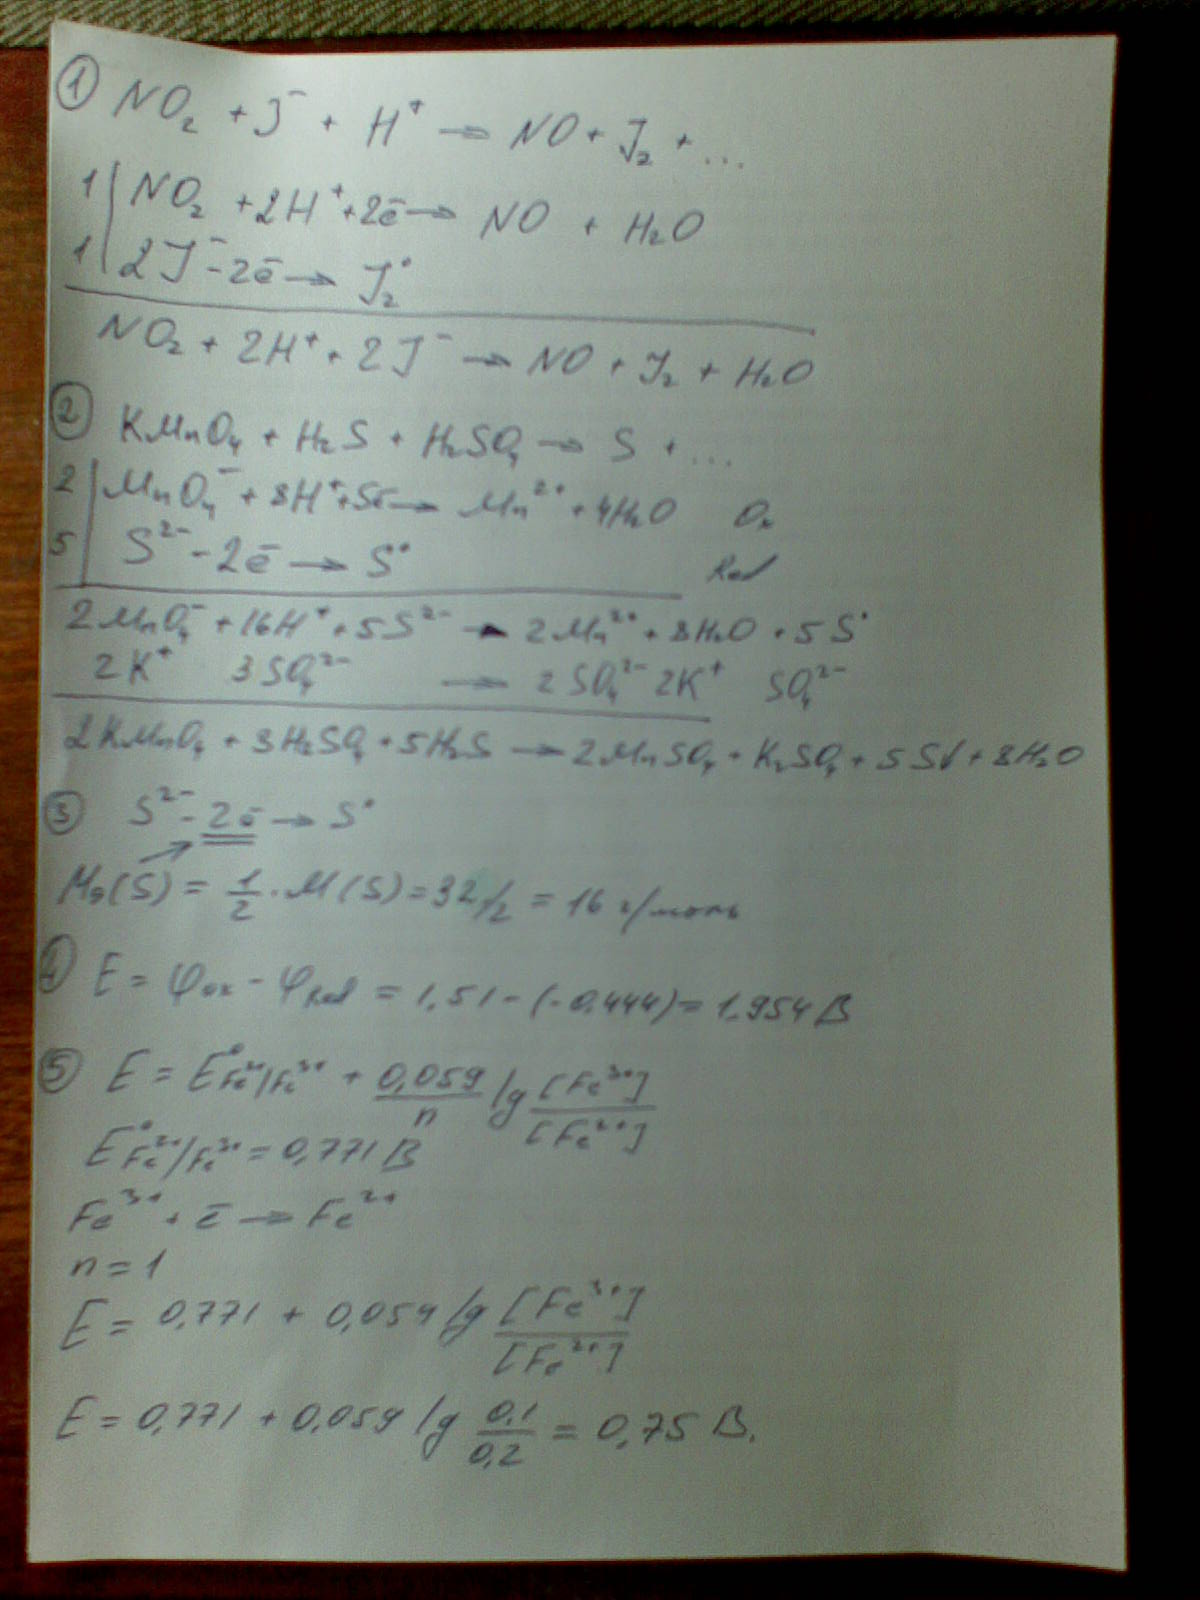 ① NO₂ + J⁻ + H⁺ → NO + J₂ + ...
1 | NO₂ + 2H⁺ + 2ē → NO + H₂O
1 | 2J⁻ - 2ē → J₂°
NO₂ + 2H⁺ + 2J⁻ → NO + J₂ + H₂O
② KMnO₄ + H₂S + H₂SO₄ → S + ...
2 | MnO₄⁻ + 8H⁺ + 5ē → Mn²⁺ + 4H₂O Ox
5 | S²⁻ - 2ē → S° Red
2MnO₄⁻ + 16H⁺ + 5S²⁻ → 2Mn²⁺ + 8H₂O + 5S°
2K⁺ 3SO₄²⁻ → 2SO₄²⁻ 2K⁺ SO₄²⁻
2KMnO₄ + 3H₂SO₄ + 5H₂S → 2MnSO₄ + K₂SO₄ + 5S↓ + 8H₂O
③ S²⁻ - 2ē → S°
Mэ(S) = 1/2 · M(S) = 32/2 = 16 г/моль
④ E = φox - φRed = 1,51 - (-0,444) = 1.954 В
⑤ E = E°Fe²⁺/Fe³⁺ + 0,059/n lg [Fe³⁺]/[Fe²⁺]
E°Fe²⁺/Fe³⁺ = 0,771 В
Fe³⁺ + ē → Fe²⁺
n = 1
E = 0,771 + 0,059 lg [Fe³⁺]/[Fe²⁺]
E = 0,771 + 0,059 lg 0,1/0,2 = 0,75 В.